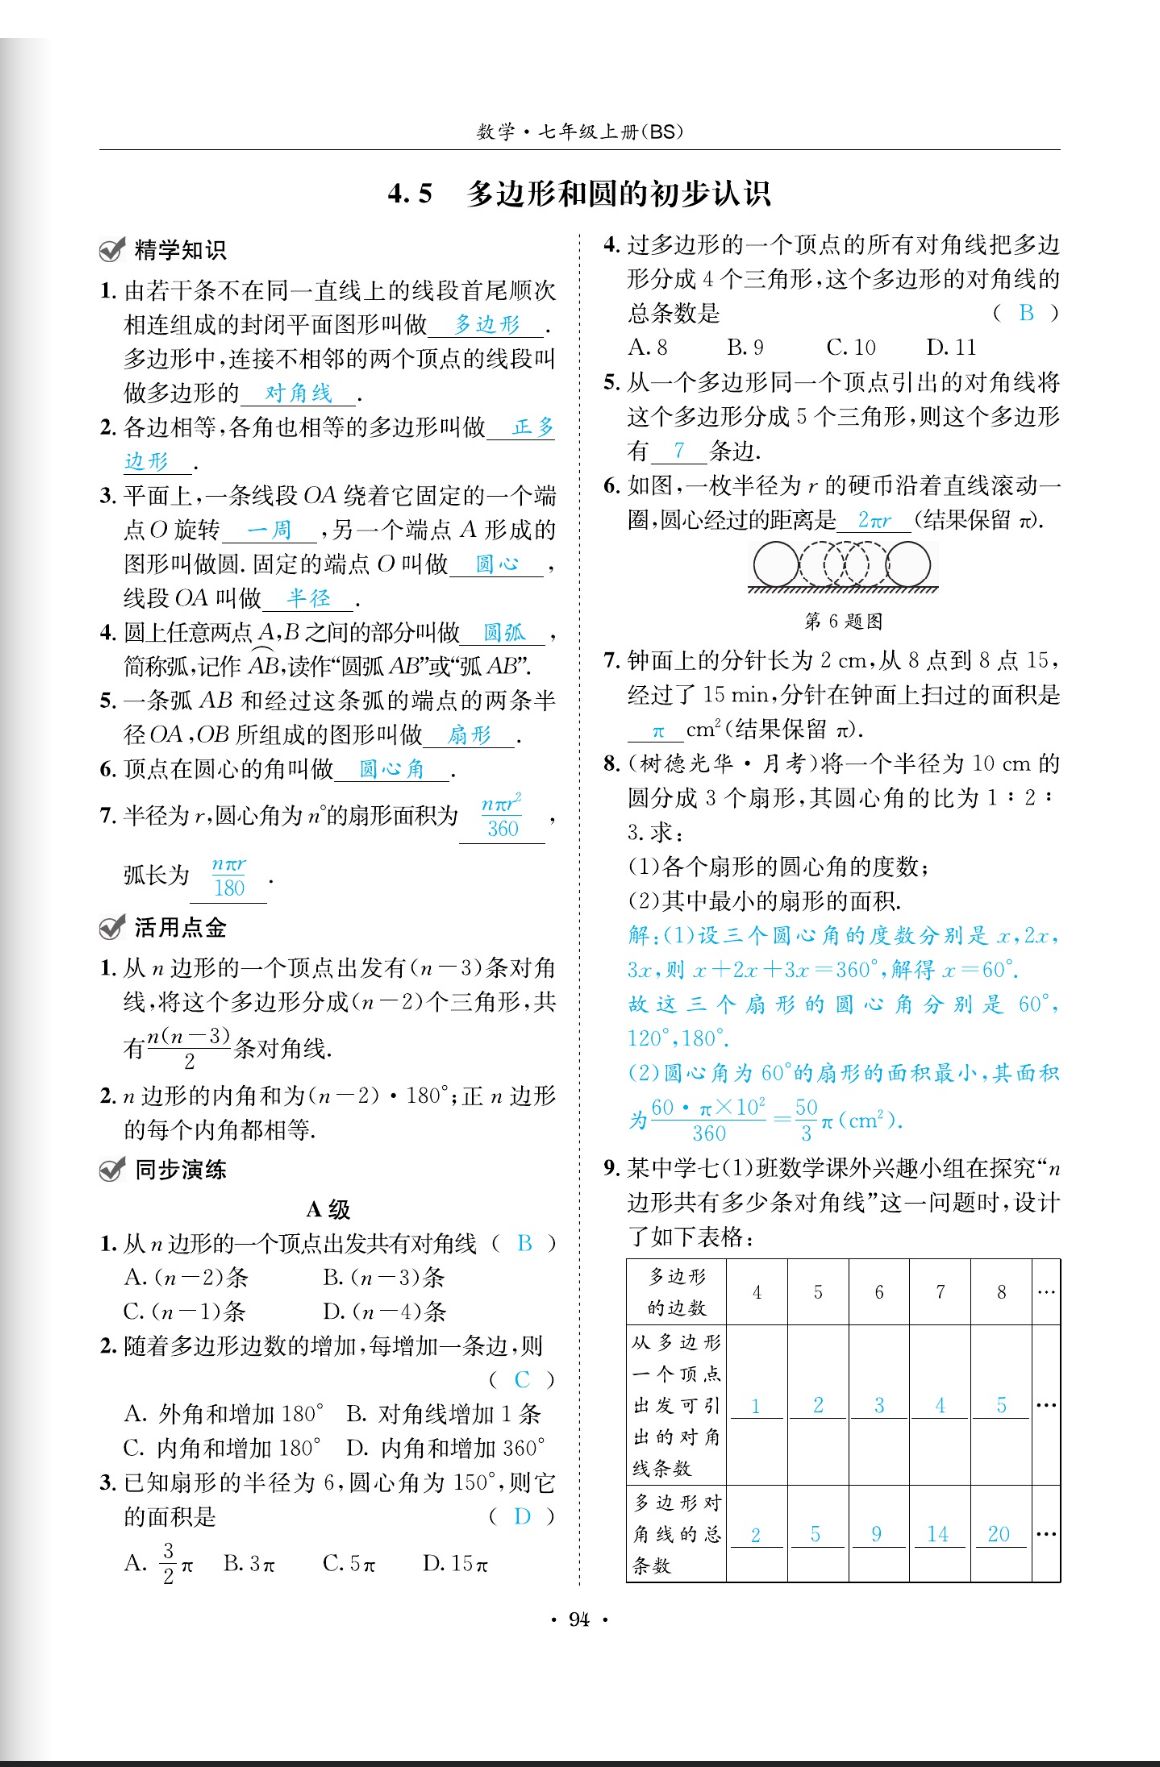 数学·七年级上册(BS)
4.5 多边形和圆的初步认识
精学知识
1. 由若干条不在同一直线上的线段首尾顺次
相连组成的封闭平面图形叫做 多边形 .
多边形中,连接不相邻的两个顶点的线段叫
做多边形的 对角线 .
2. 各边相等,各角也相等的多边形叫做 正多
边形 .
3. 平面上,一条线段 OA 绕着它固定的一个端
点 O 旋转 一周 ,另一个端点 A 形成的
图形叫做圆. 固定的端点 O 叫做 圆心 ,
线段 OA 叫做 半径 .
4. 圆上任意两点 A,B 之间的部分叫做 圆弧 ,
简称弧,记作 A͡B,读作“圆弧 AB”或“弧 AB”.
5. 一条弧 AB 和经过这条弧的端点的两条半
径 OA,OB 所组成的图形叫做 扇形 .
6. 顶点在圆心的角叫做 圆心角 .
7. 半径为 r,圆心角为 n°的扇形面积为 nπr²/360 ,
弧长为 nπr/180 .
活用点金
1. 从 n 边形的一个顶点出发有(n－3)条对角
线,将这个多边形分成(n－2)个三角形,共
有 n(n－3)/2 条对角线.
2. n 边形的内角和为(n－2)·180°;正 n 边形
的每个内角都相等.
同步演练
A 级
1. 从 n 边形的一个顶点出发共有对角线 ( B )
A. (n－2)条 B. (n－3)条
C. (n－1)条 D. (n－4)条
2. 随着多边形边数的增加,每增加一条边,则
( C )
A. 外角和增加 180° B. 对角线增加 1 条
C. 内角和增加 180° D. 内角和增加 360°
3. 已知扇形的半径为 6,圆心角为 150°,则它
的面积是 ( D )
A. 3/2 π B. 3π C. 5π D. 15π
4. 过多边形的一个顶点的所有对角线把多边
形分成 4 个三角形,这个多边形的对角线的
总条数是 ( B )
A. 8 B. 9 C. 10 D. 11
5. 从一个多边形同一个顶点引出的对角线将
这个多边形分成 5 个三角形,则这个多边形
有 7 条边.
6. 如图,一枚半径为 r 的硬币沿着直线滚动一
圈,圆心经过的距离是 2πr (结果保留 π).
第 6 题图
7. 钟面上的分针长为 2 cm,从 8 点到 8 点 15,
经过了 15 min,分针在钟面上扫过的面积是
π cm²(结果保留 π).
8. (树德光华·月考)将一个半径为 10 cm 的
圆分成 3 个扇形,其圆心角的比为 1∶2∶
3. 求:
(1)各个扇形的圆心角的度数;
(2)其中最小的扇形的面积.
解:(1)设三个圆心角的度数分别是 x,2x,
3x,则 x＋2x＋3x＝360°,解得 x＝60°.
故这三个扇形的圆心角分别是 60°,
120°,180°.
(2)圆心角为 60°的扇形的面积最小,其面积
为 60·π×10²/360＝50/3 π(cm²).
9. 某中学七(1)班数学课外兴趣小组在探究“n
边形共有多少条对角线”这一问题时,设计
了如下表格:
多边形
的边数 4 5 6 7 8 …
从多边形
一个顶点
出发可引 1 2 3 4 5 …
出的对角
线条数
多边形对
角线的总 2 5 9 14 20 …
条数
·94·